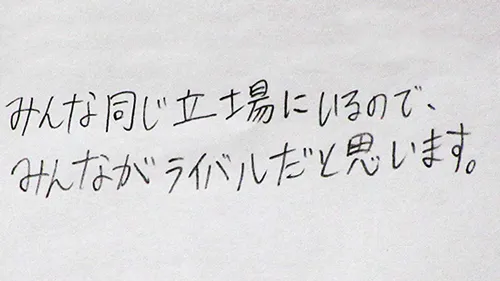 みんな同じ立場にいるので、
みんながライバルだと思います。